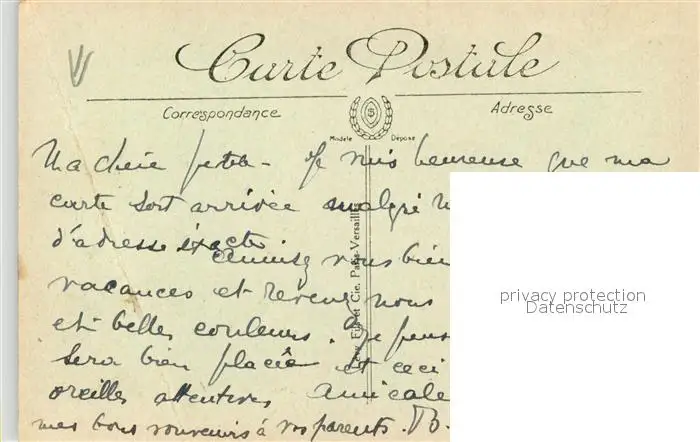 Carte Postale
Correspondance
Adresse
Modèle Déposé
Ma chère petite - Je suis heureuse que ma
carte soit arrivée malgré
d'adresse exacte.
Amusez vous bien
vacances et revenez nous
et belles couleurs. Je pens
sera bien placée et ceci
oreilles attentives Amicale
mes bons souvenirs à vos parents. B.
Lévy Fils et Cie, Paris-Versailles
privacy protection
Datenschutz